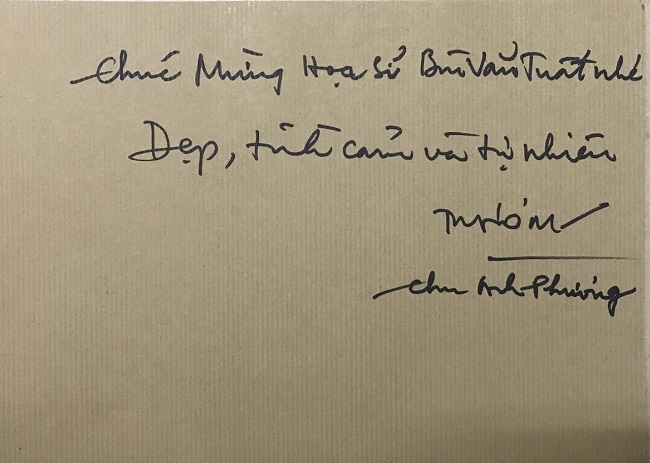 Chúc Mừng Họa Sĩ Bùi Văn Tuất nhé
Đẹp, tình cảm và tự nhiên
Chu Anh Phương